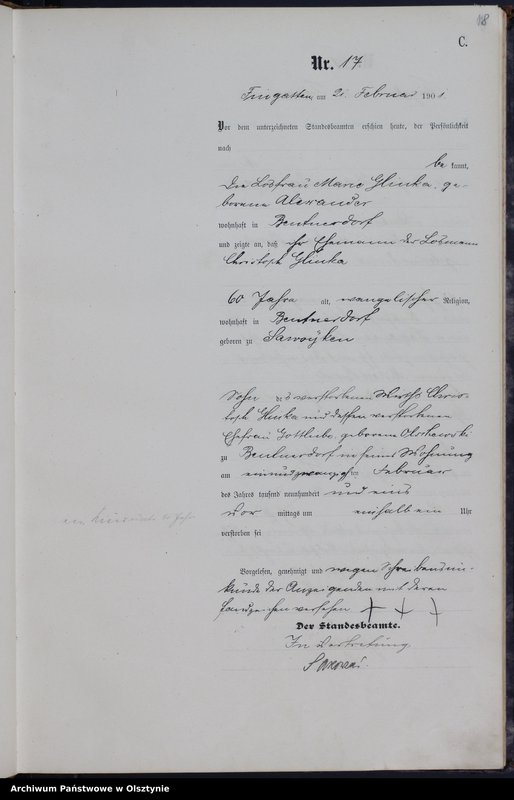 18
C.
Nr. 17.
am 21. Februar 1901
Vor dem unterzeichneten Standesbeamten erschien heute, der Persönlichkeit
nach
be kannt,
die Losfrau Marie Glinka, ge-
borene Alexander
wohnhaft in Beutnerdorf
und zeigte an, daß ihr Ehemann der Losmann
Christoph Glinka
60 Jahre alt, evangelischer Religion,
wohnhaft in Beutnerdorf
geboren zu Sawoyken
Sohn des verstorbenen Wirths Chris-
toph Glinka und dessen verstorbenen
Ehefrau Gottliebe, geborene
zu Beutnerdorf in seiner Wohnung
am einundzwanzigsten Februar
des Jahres tausend neunhundert und eins
Vor mittags um einhalb ein Uhr
verstorben sei
Vorgelesen, genehmigt und wegen Schreibensun-
kunde der Anzeigenden mit deren
Handzeichen versehen + + +
Der Standesbeamte.
In Vertretung
Archiwum Państwowe w Olsztynie